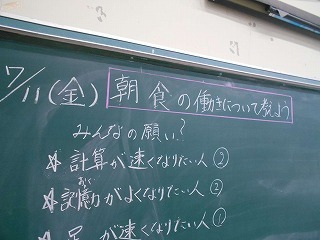 7/11(金) 朝食の働きについて考えよう
みんなの願い?
☆計算が速くなりたい人②
おく
☆記憶力がよくなりたい人②
☆足が速くなりたい人①